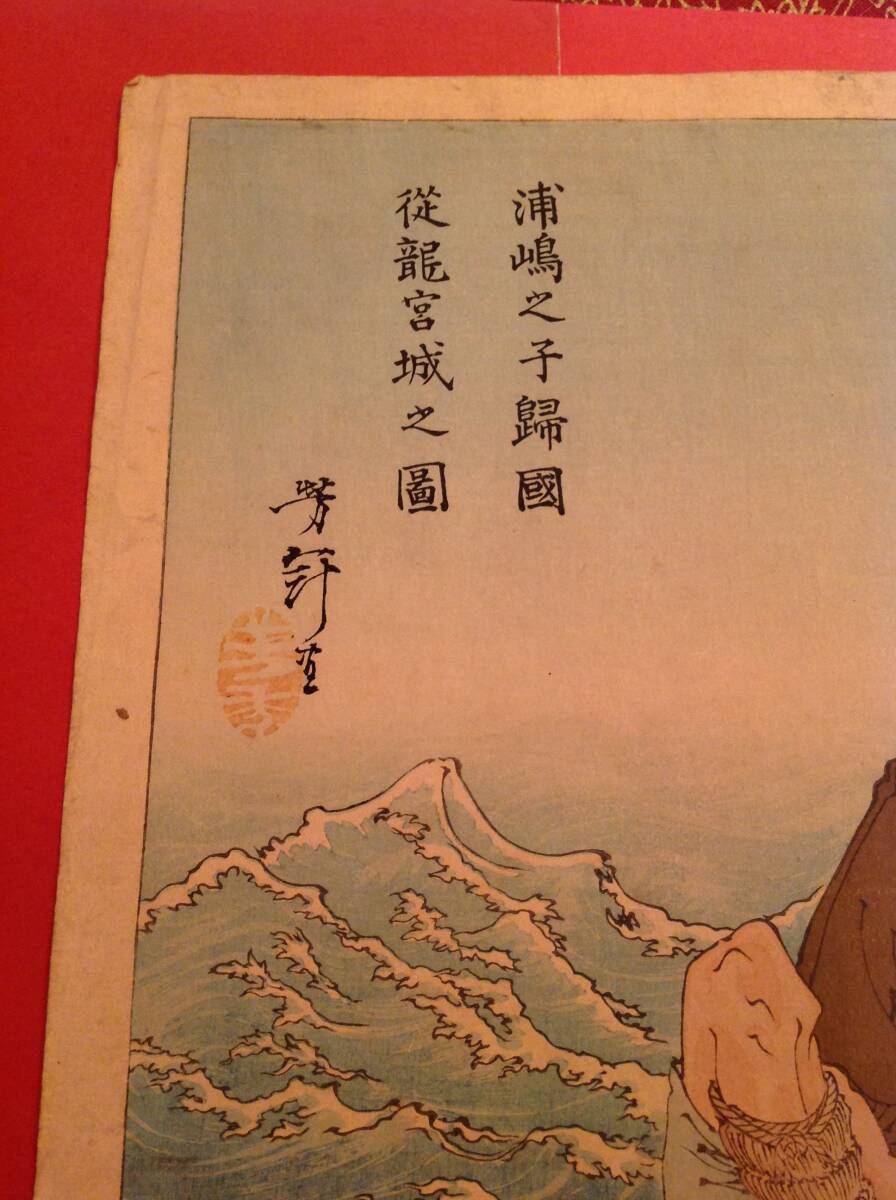 浦嶋之子歸國
從龍宮城之圖
芳年画